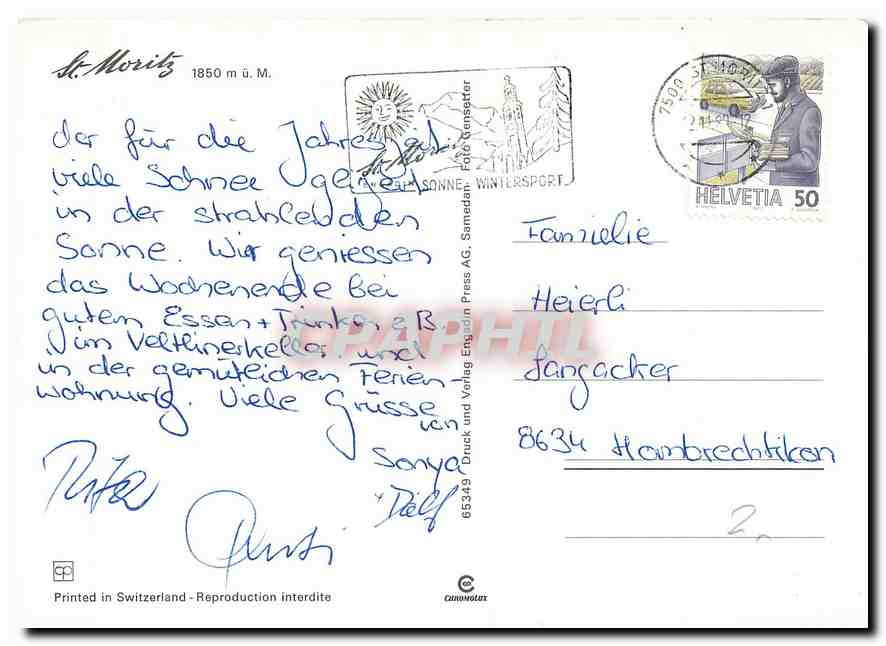 St. Moritz 1850 m ü. M.
der für die Jahreszeit
viele Schnee
in der strahlenden
Sonne. Wir geniessen
das Wochenende bei
gutem Essen + Trinken z.B.
im Veltlinerkeller und
in der gemütlichen Ferien-
wohnung. Viele Grüsse
von
Sonya
Rita
Printed in Switzerland - Reproduction interdite
cp
St. Moritz
SONNE WINTERSPORT
65349 Druck und Verlag Engadin Press AG, Samedan Foto Gensetter
CHROMOLUX
7500 ST. MORITZ
HELVETIA 50
Familie
Heierli
Langacker
8634 Hombrechtikon
2.
CPAPHIL